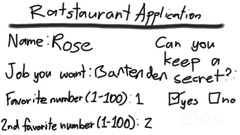 Ratstaurant Application
Name: Rose
Can you keep a secret?:
Job you want: Bartender
Favorite number (1-100): 1
☑yes ☐no
2nd favorite number (1-100): 2